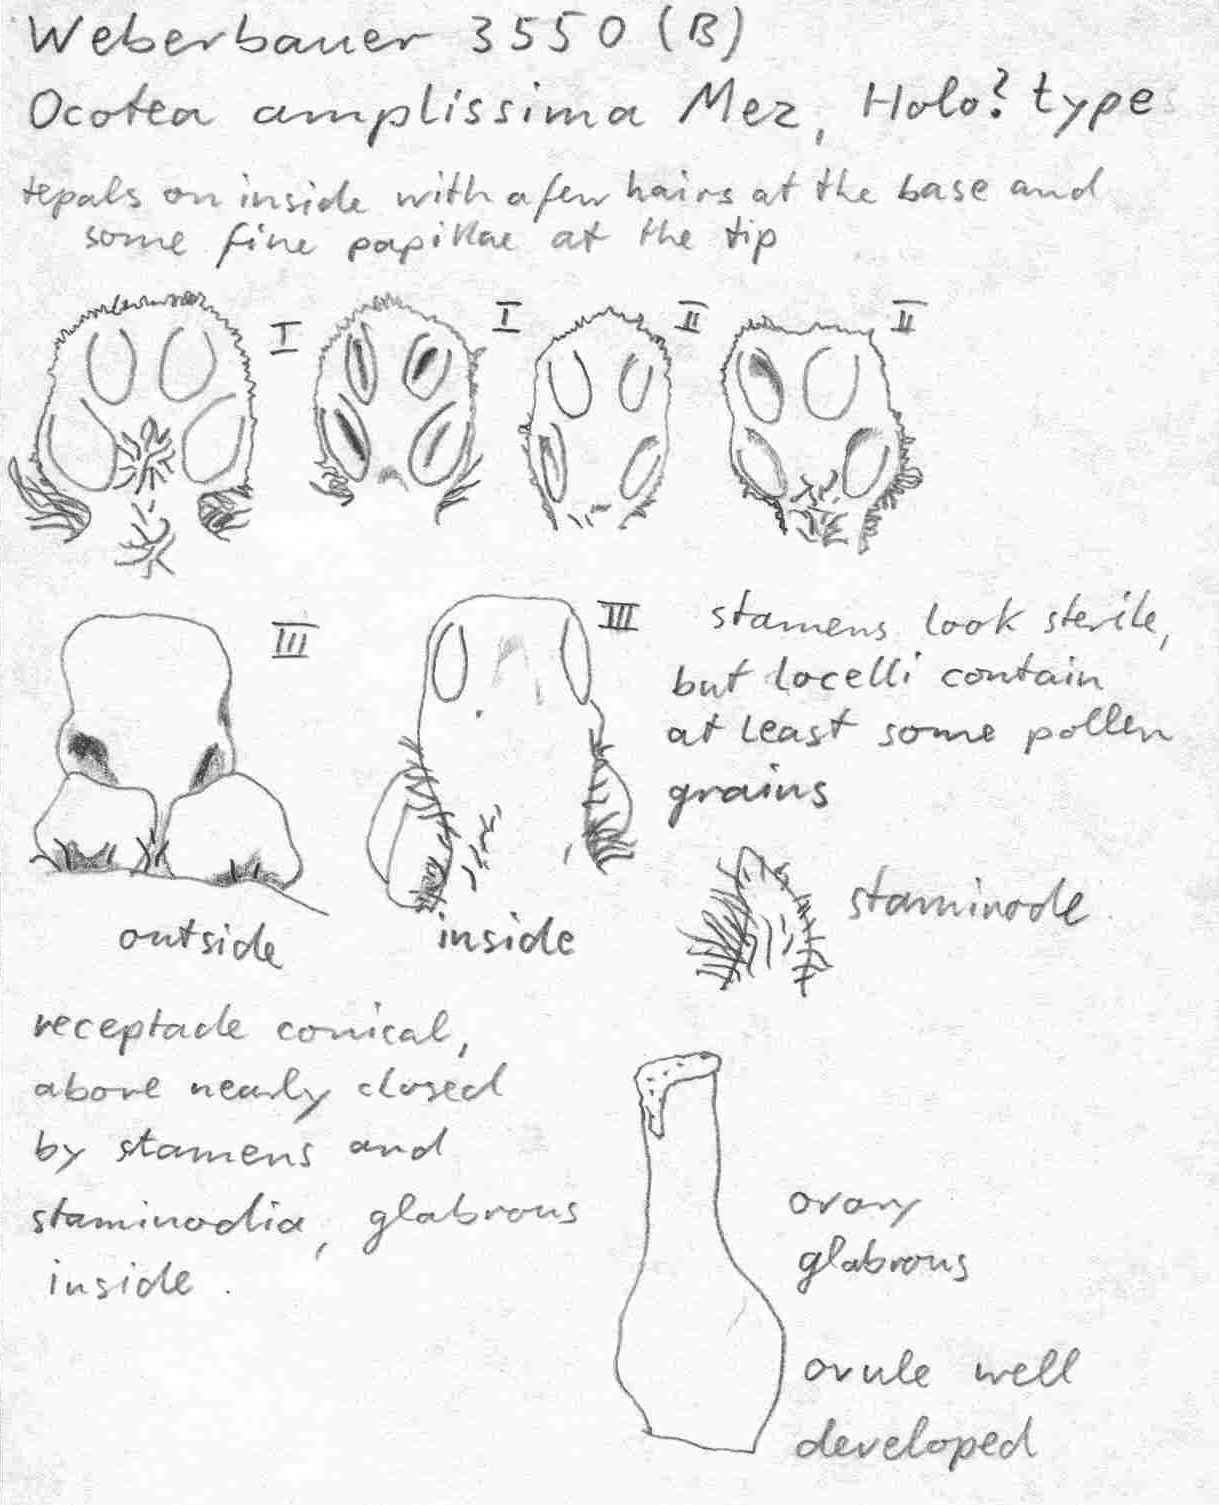 Weberbauer 3550 (B)
Ocotea amplissima Mez, Holo? type
tepals on inside with a few hairs at the base and
some fine papillae at the tip
I
I
II
II
III
III
stamens look sterile,
but locelli contain
at least some pollen
grains
staminode
outside
inside
receptacle conical,
above nearly closed
by stamens and
staminodia, glabrous
inside.
ovary
glabrous
ovule well
developed